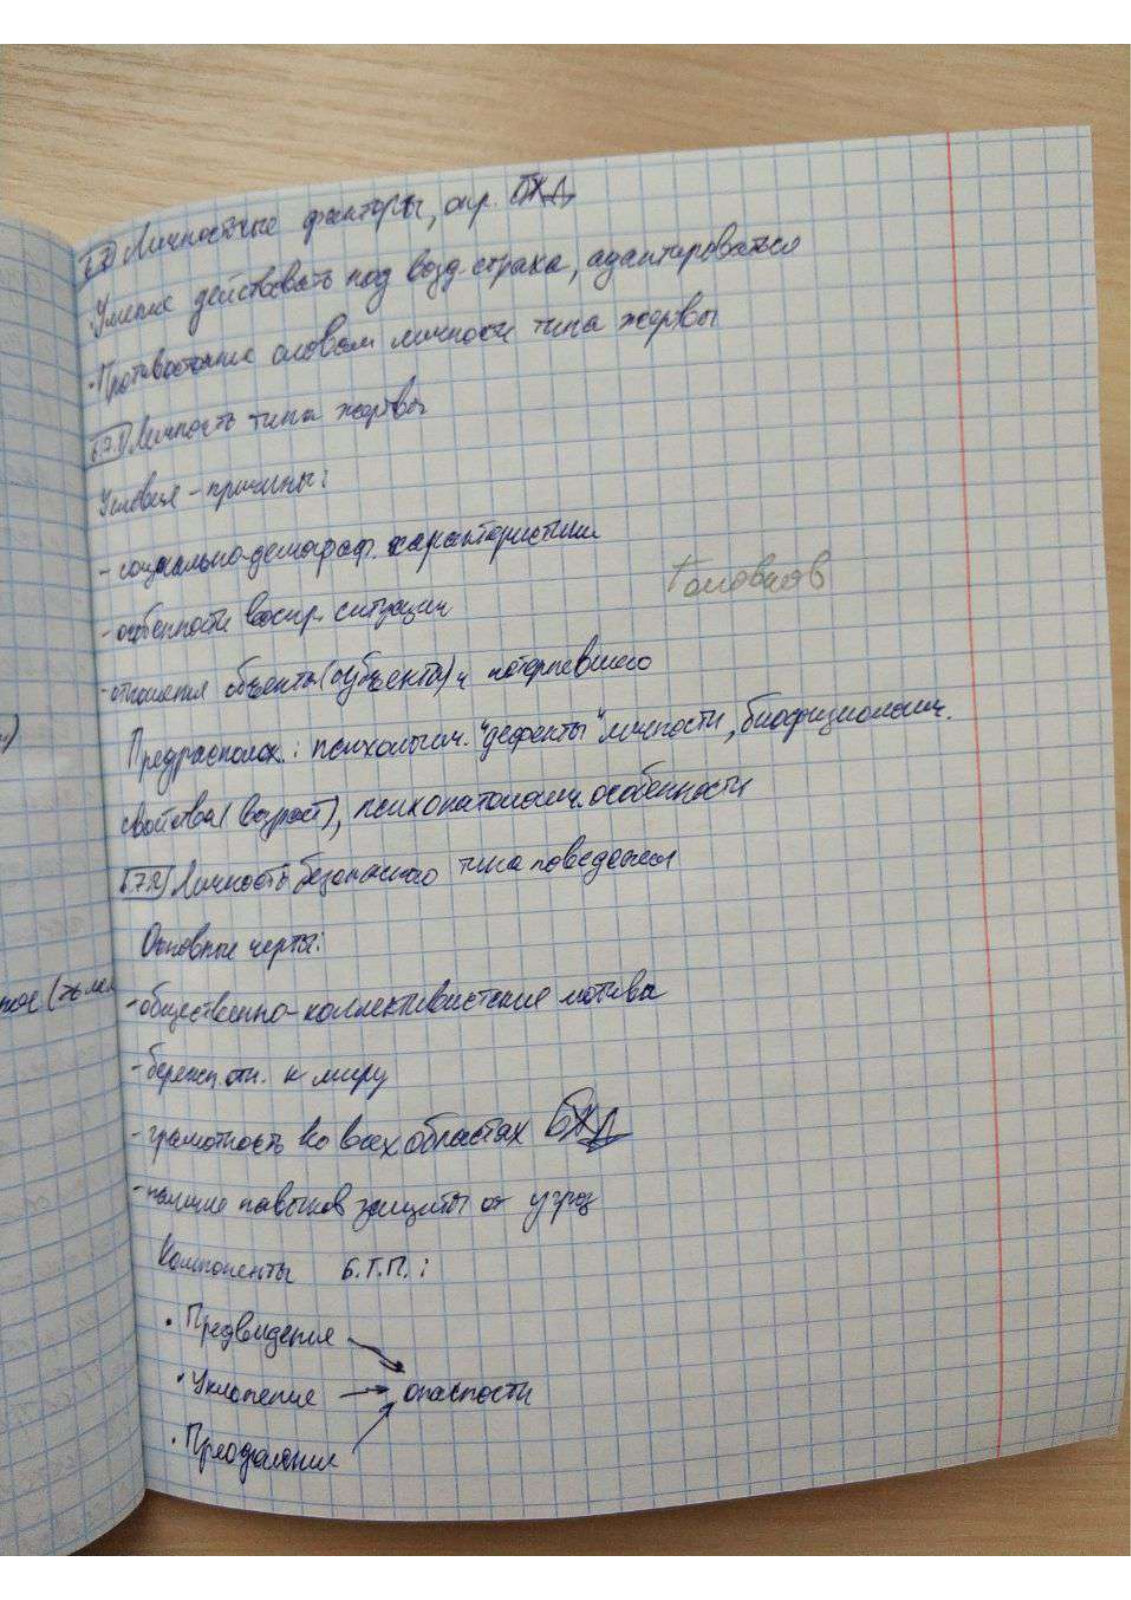 6.7) Личностные факторы, опр. БЖД
• Умение действовать под возд. страха, адаптироваться
• Противостояние словам личности типа жертвы
6.7.1) Личность типа жертвы
Условия - причины:
- социально-демограф. характеристики
- особенности воспр. ситуации
Головков
- отношения объекта (субъекта) и потерпевшего
Предрасполож.: психологич. "дефекты" личности, биофизиологич.
свойства (возраст), психопатологич. особенности
6.7.2) Личность безопасного типа поведения
Основные черты:
- общественно-коллективистские мотивы
- бережн. отн. к миру
- грамотность во всех областях БЖД
- наличие навыков защиты от угроз
Компоненты Б.Т.П.:
• Предвидение
• Уклонение → опасности
• Преодоление